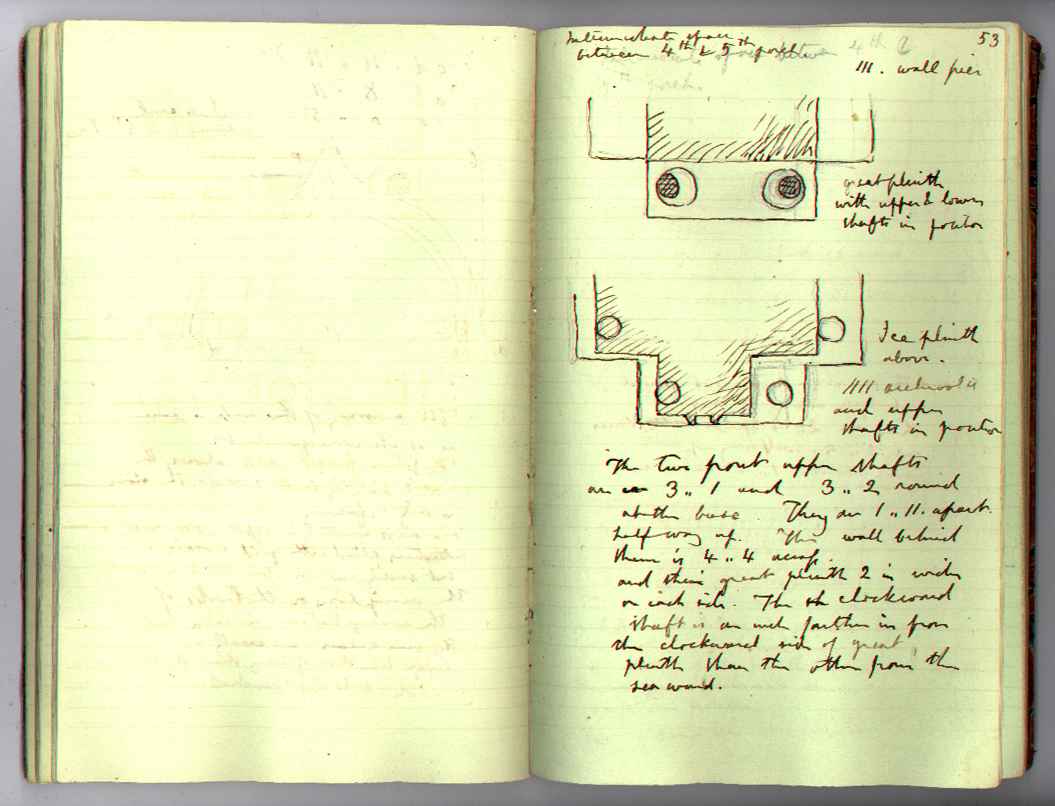 53
Intermediate space
between 4th & 5th porch
between 4th &
porch.
III. wall pier
great plinth
with upper & lower
shafts in position
See plinth
above.
IIII archivolt
and upper
shafts in position
The two front upper shafts
are 3,, 1 and 3,, 2 round
at the base. They are 1,, 11. apart.
half way up. The wall behind
them is 4,, 4 across.
and their great plinth 2 in wider
on each side. The clockward
shaft is an inch farther in from
the clockward side of great
plinth than the other from the
seaward.